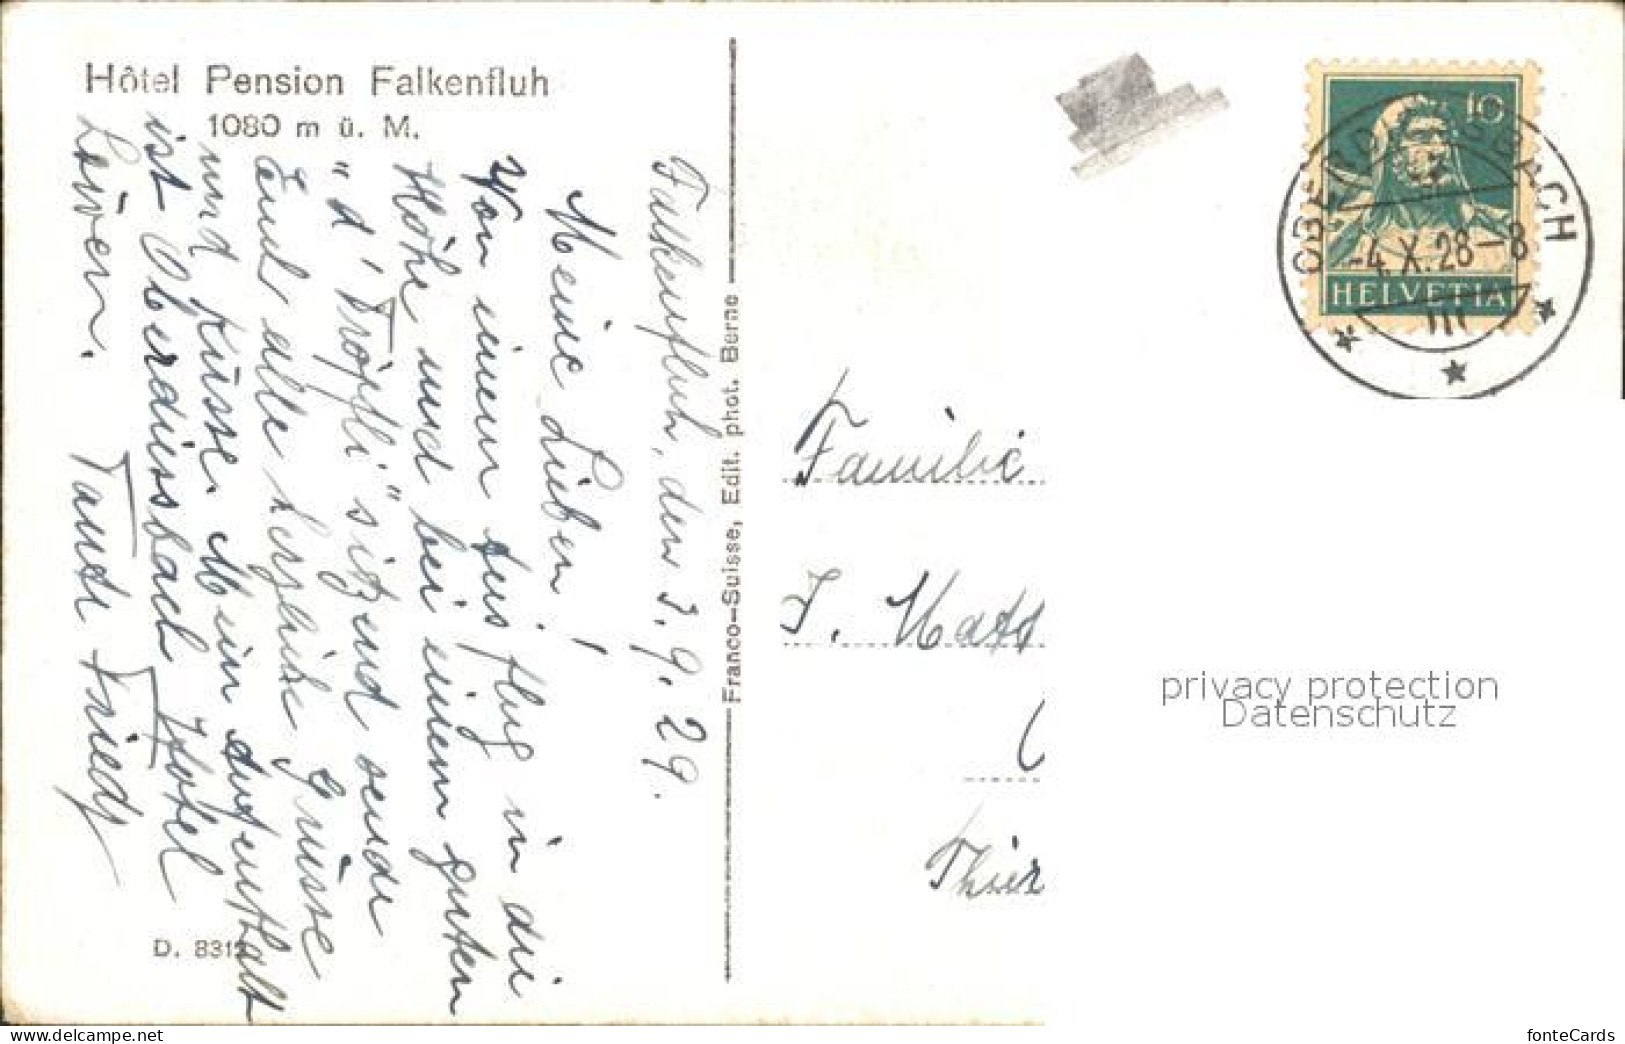 Hôtel Pension Falkenfluh
1080 m ü. M.
Falkenfluh, den 3. 9. 29.
Meine Lieben!
Von einem Ausflug in die
Höhe und bei einem guten
"d' Tröpfli" sitzend sende
Euch alle herzliche Grüsse
und Küsse. Mein Aufenthalt
ist Oberdiessbach Hotel
Löwen. Tante Friedy
D. 831
Franco-Suisse, Edit. phot. Berne
10
HELVETIA
OBERDIESSBACH
-4. X. 28-8
III
Familie
J.
privacy protection
Datenschutz
fonteCards